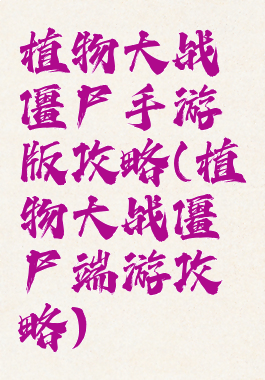 植物大战
僵尸手游
版攻略(植
物大战僵
尸端游攻
略)